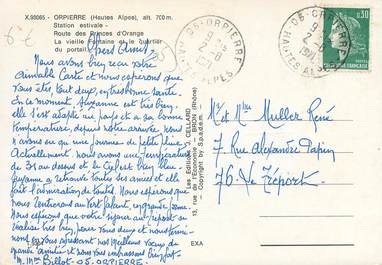 X.98065 - ORPIERRE (Hautes Alpes), alt. 700 m.
Station estivale -
Route des Princes d'Orange
La vieille Fontaine et le quartier
du portail.
05-ORPIERRE
HAUTES ALPES
05-ORPIERRE
HAUTES ALPES
0,30
Chers Amis
Nous avons bien reçu votre
aimable Carte et nous espérons que
vous êtes, tout deux, en bonne santé.
En ce moment Suzanne est très bien,
elle s'est adaptée au pays et a sa bonne
température, depuis notre arrivée nous
n'avons eu qu'une journée de petite pluie
Actuellement nous avons une température
de 31 au dessus et le Ciel est bien bleu.
Suzanne a retrouvé toutes ses amies et elle
fait l'admiration de tout le monde. Nous espérons que
nous rentrerons au Port
Nous
espérons que votre séjour au Tréport se
réalise très bien, pour vous deux et nous
Meilleurs vœux de
Amitié et nous vous embrassons bien fort
M. Mme Billot - 05. ORPIERRE
Les Editions J. CELLARD
13, rue de l'Economie - BRON (Rhône)
- Copyright by S.p.a.d.e.m. -
EXA
Mr et Mme Muller René
7 Rue Alexandre Papin
76 - Le Tréport -